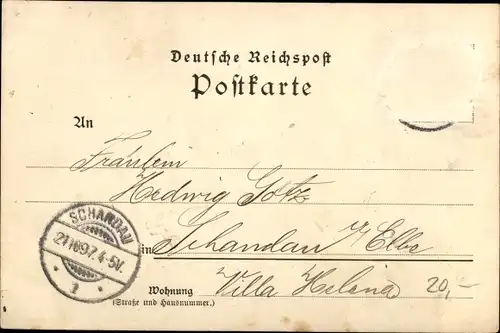 Deutsche Reichspost
Postkarte
An
Fräulein
Hedwig Götz
SCHANDAU
in Schandau a/ Elbe
4-5N.
*1*
Wohnung Villa Helena 20,-
(Straße und Hausnummer.)